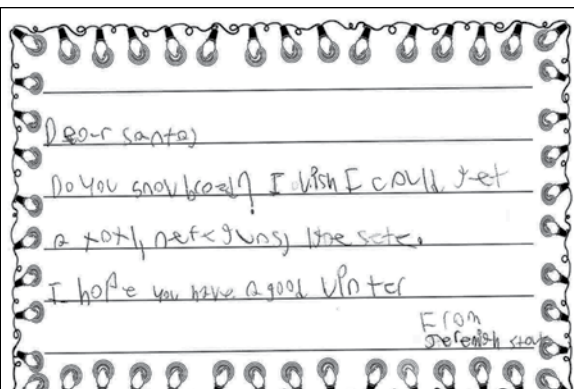 Dear santa,
Do You snowbroad? I wish I could get
a nerf guns,
I hope you have a good Winter
From
Jeremiah